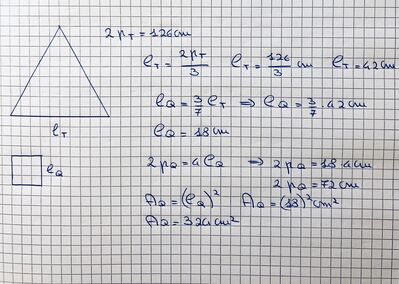 2pT = 126 cm
ℓT = 2pT/3 ℓT = 126/3 cm ℓT = 42 cm
ℓQ = 3/7 ℓT ⇒ ℓQ = 3/7 · 42 cm
ℓT
ℓQ = 18 cm
ℓQ
2pQ = 4ℓQ ⇒ 2pQ = 18·4 cm
2pQ = 72 cm
AQ = (ℓQ)² AQ = (18)² cm²
AQ = 324 cm²